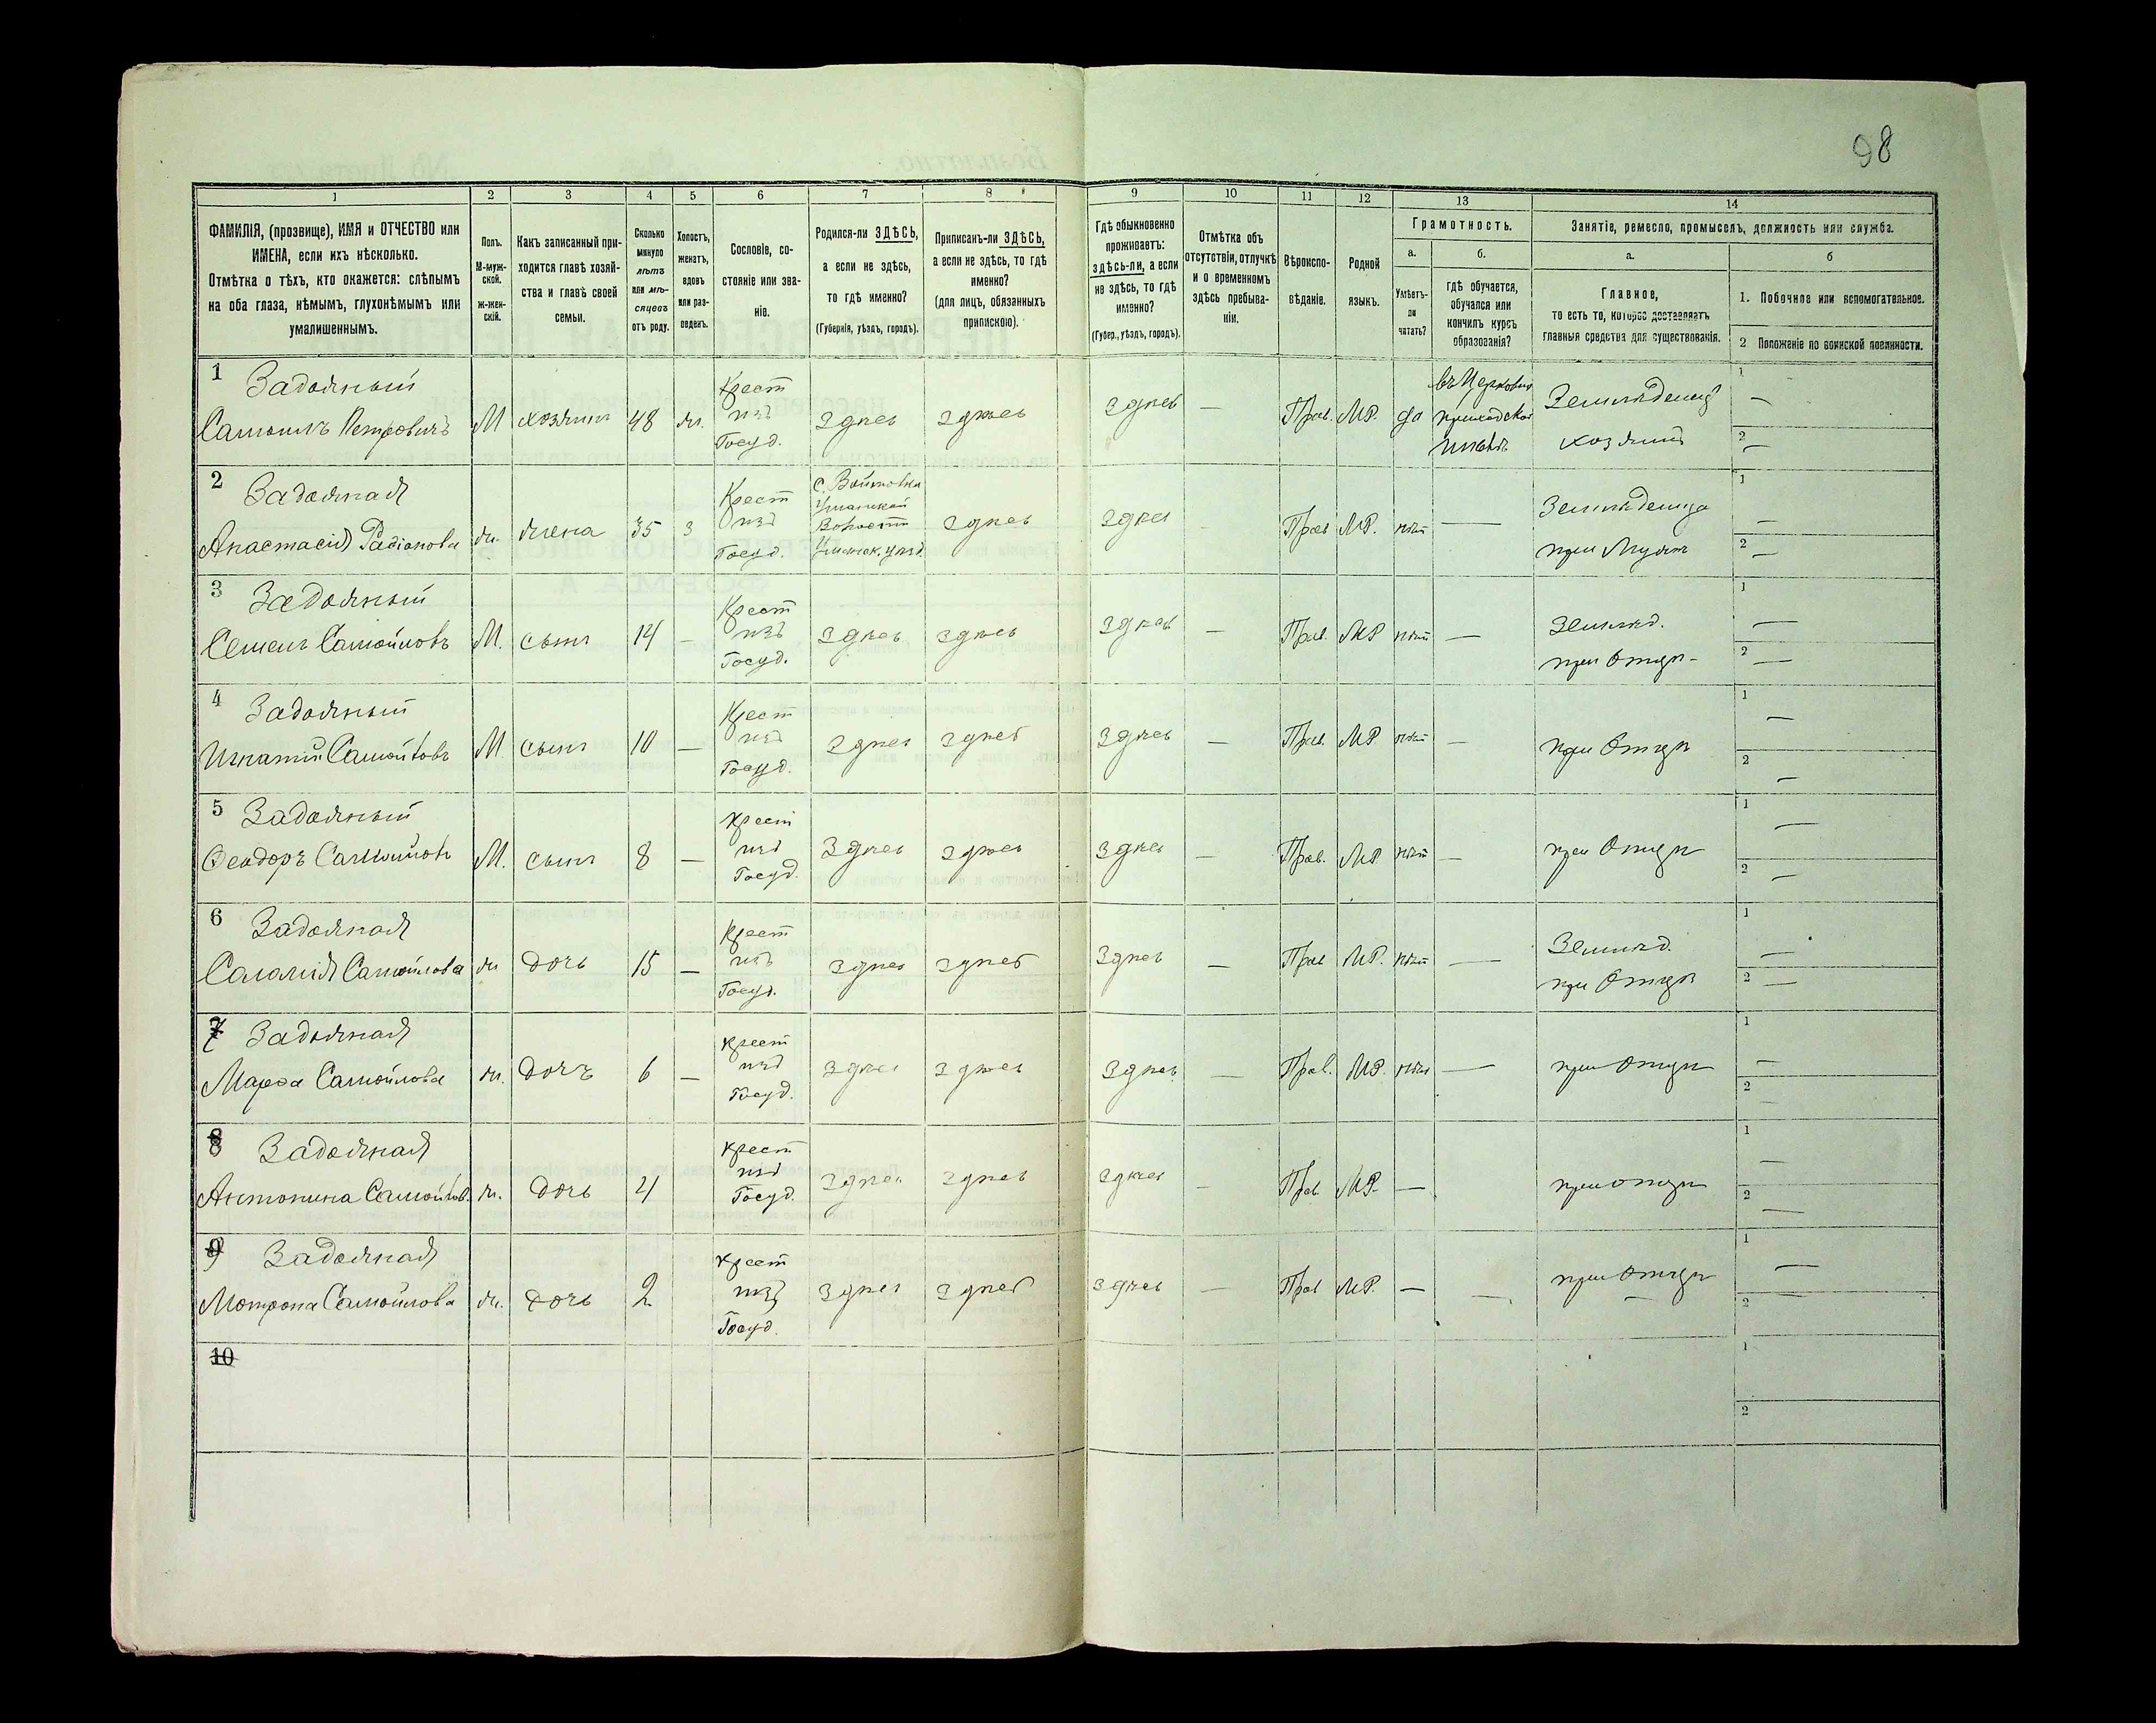 98
1 2 3 4 5 6 7 8 9 10 11 12 13 14
ФАМИЛІЯ, (прозвище), ИМЯ и ОТЧЕСТВО или
ИМЕНА, если ихъ нѣсколько.
Отмѣтка о тѣхъ, кто окажется: слѣпымъ
на оба глаза, нѣмымъ, глухонѣмымъ или
умалишеннымъ.
Полъ.
М-муж-
ской.
ж-жен-
скій.
Какъ записанный при-
ходится главѣ хозяй-
ства и главѣ своей
семьи.
Сколько
минуло
лѣтъ
или мѣ-
сяцевъ
отъ роду.
Холостъ,
женатъ,
вдовъ
или раз-
веденъ.
Сословіе, со-
стояніе или зва-
ніе.
Родился-ли ЗДѢСЬ,
а если не здѣсь,
то гдѣ именно?
(Губернія, уѣздъ, городъ).
Приписанъ-ли ЗДѢСЬ,
а если не здѣсь, то гдѣ
именно?
(для лицъ, обязанныхъ
припискою).
Гдѣ обыкновенно
проживаетъ:
здѣсь-ли, а если
не здѣсь, то гдѣ
именно?
(Губер., уѣздъ, городъ).
Отмѣтка объ
отсутствіи, отлучкѣ
и о временномъ
здѣсь пребыва-
ніи.
Вѣроиспо-
вѣданіе.
Родной
языкъ.
Грамотность.
а.
Умѣетъ-
ли
читать?
б.
гдѣ обучается,
обучался или
кончилъ курсъ
образованія?
Занятіе, ремесло, промыселъ, должность или служба.
а.
Главное,
то есть то, которое доставляетъ
главныя средства для существованія.
б
1. Побочное или вспомогательное.
2 Положеніе по воинской повинности.
1 Задояный
Самоилъ Петровичъ М хозяинъ 48 ж. Крест изъ Госуд. Здесь здесь здесь — Прав. МР. да въ Церковно приходской школѣ Земледелецъ хозяинъ 1 — 2 —
2 Задояная
Анастасія Радіонова ж. жена 35 з Крест изъ Госуд. с. Войтовка Уманской Волости Уманск. уѣзд. здесь здесь — Прав МР. нѣт — Земледелица при Мужѣ 1 — 2 —
3 Задояный
Семенъ Самойловъ М. сынъ 14 — Крест изъ Госуд. здесь здесь здесь — Прав. МР нѣт — Землед. при Отцѣ 1 — 2 —
4 Задояный
Игнатій Самойловъ М сынъ 10 — Крест изъ Госуд. здесь здесь здесь — Прав. МР нѣт — при Отцѣ 1 — 2 —
5 Задояный
Феодоръ Самойловъ М. сынъ 8 — крест изъ Госуд. Здесь здесь здесь — Прав. МР нѣт — при Отцѣ 1 — 2 —
6 Задояная
Саломія Самойлова ж дочь 15 — Крест изъ Госуд. здесь здесь здесь — Прав МР. нѣт — Землед. при Отцѣ 1 — 2 —
7 Задояная
Марфа Самойлова ж. дочъ 6 — крест изъ Госуд. здесь здесь здесь — Прав. МР. нѣт — при Отцѣ 1 — 2 —
8 Задояная
Антонина Самойлов. ж. дочь 4 крест изъ Госуд. здесь здесь здесь — Прав МР. — при отцѣ 1 — 2 —
9 Задояная
Мотрона Самойлова ж. дочь 2 крест изъ Госуд. здесь здесь здесь — Прав МР. — — при отцѣ 1 — 2 —
10 1 2